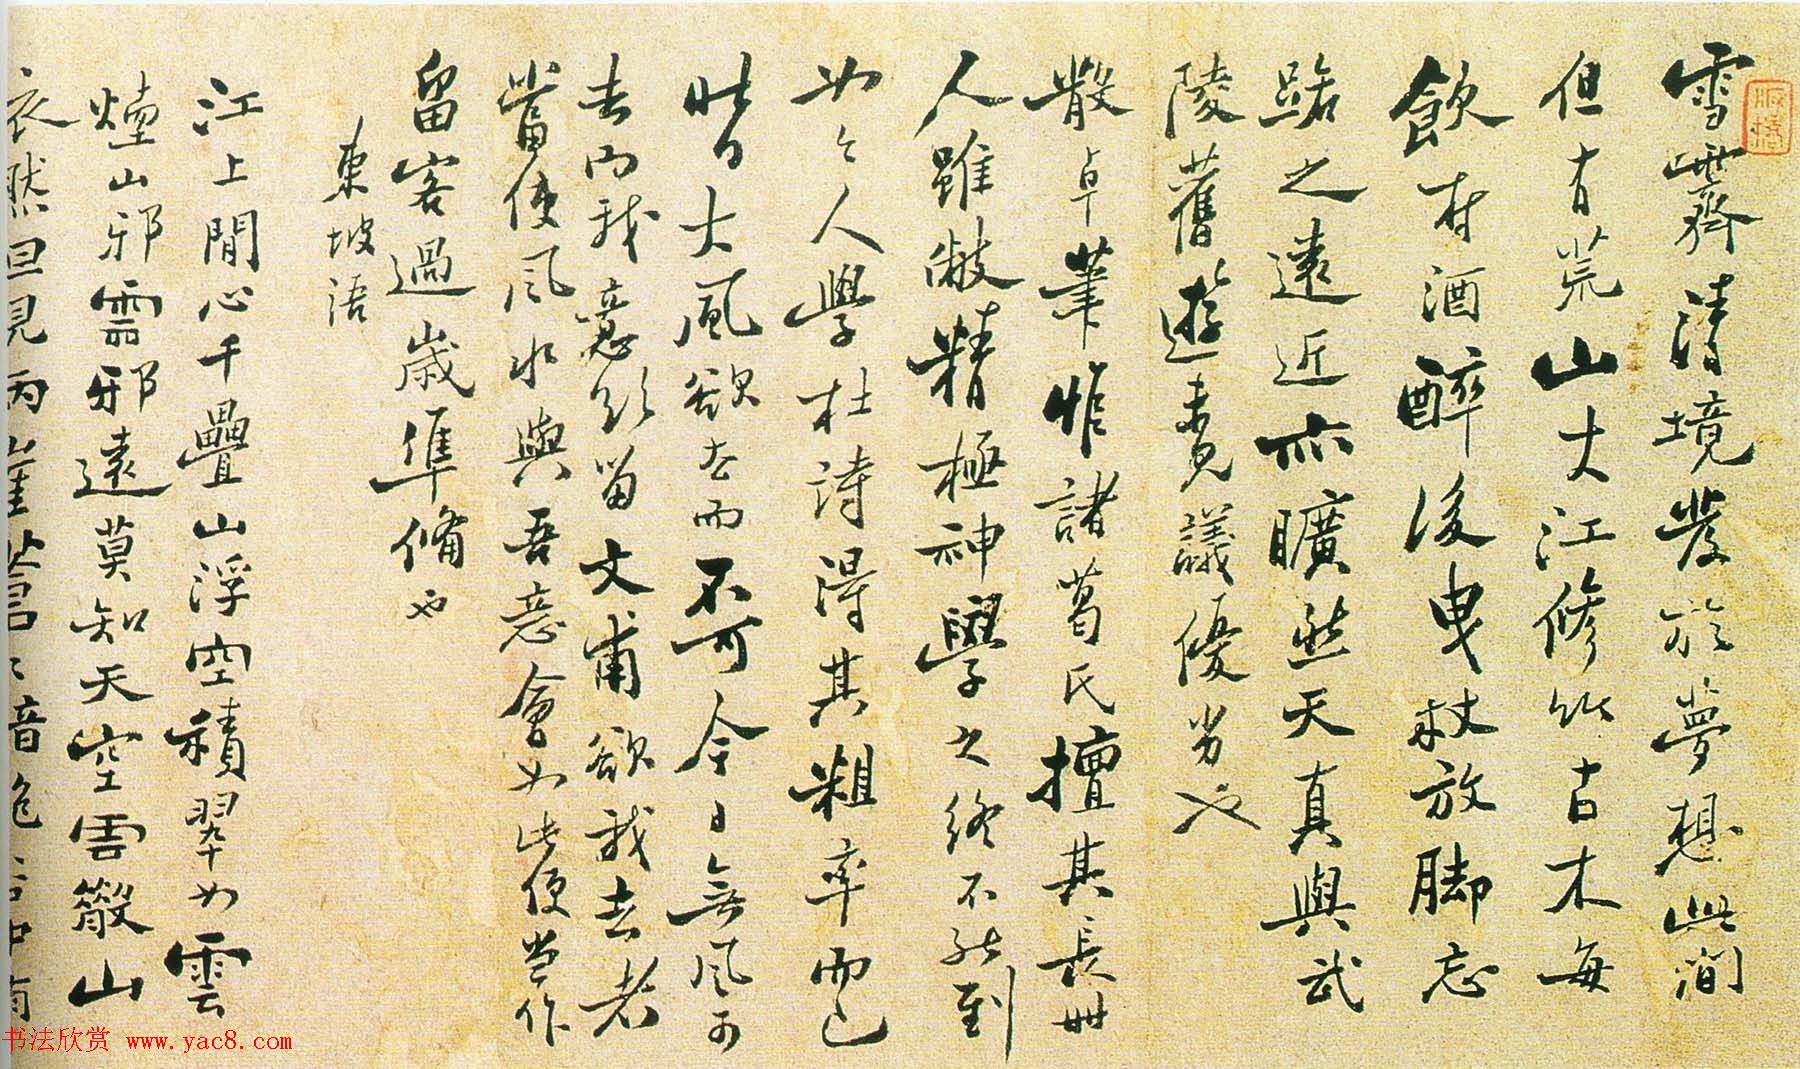 雪霽清境發於夢想此間
但有荒山大江脩竹古木每
飲村酒醉後曳杖放脚忘
路之遠近亦曠然天真與武
陵舊遊未見議優劣也
散卓筆惟諸葛氏擅其長世
人雖倣精極神學之終不能到
如人學杜詩得其粗率而已
昨日大風欲去而不可今日無風可
去而我意欲留文甫欲我去者
當使風水與吾意會如此便當作
留客過歲準備也
東坡語
江上閒心千疊山浮空積翠如雲
煙山邪雲邪遠莫知天空雲散山
依然但見兩崖蒼〻暗絕谷中有
书法欣赏 www.yac8.com